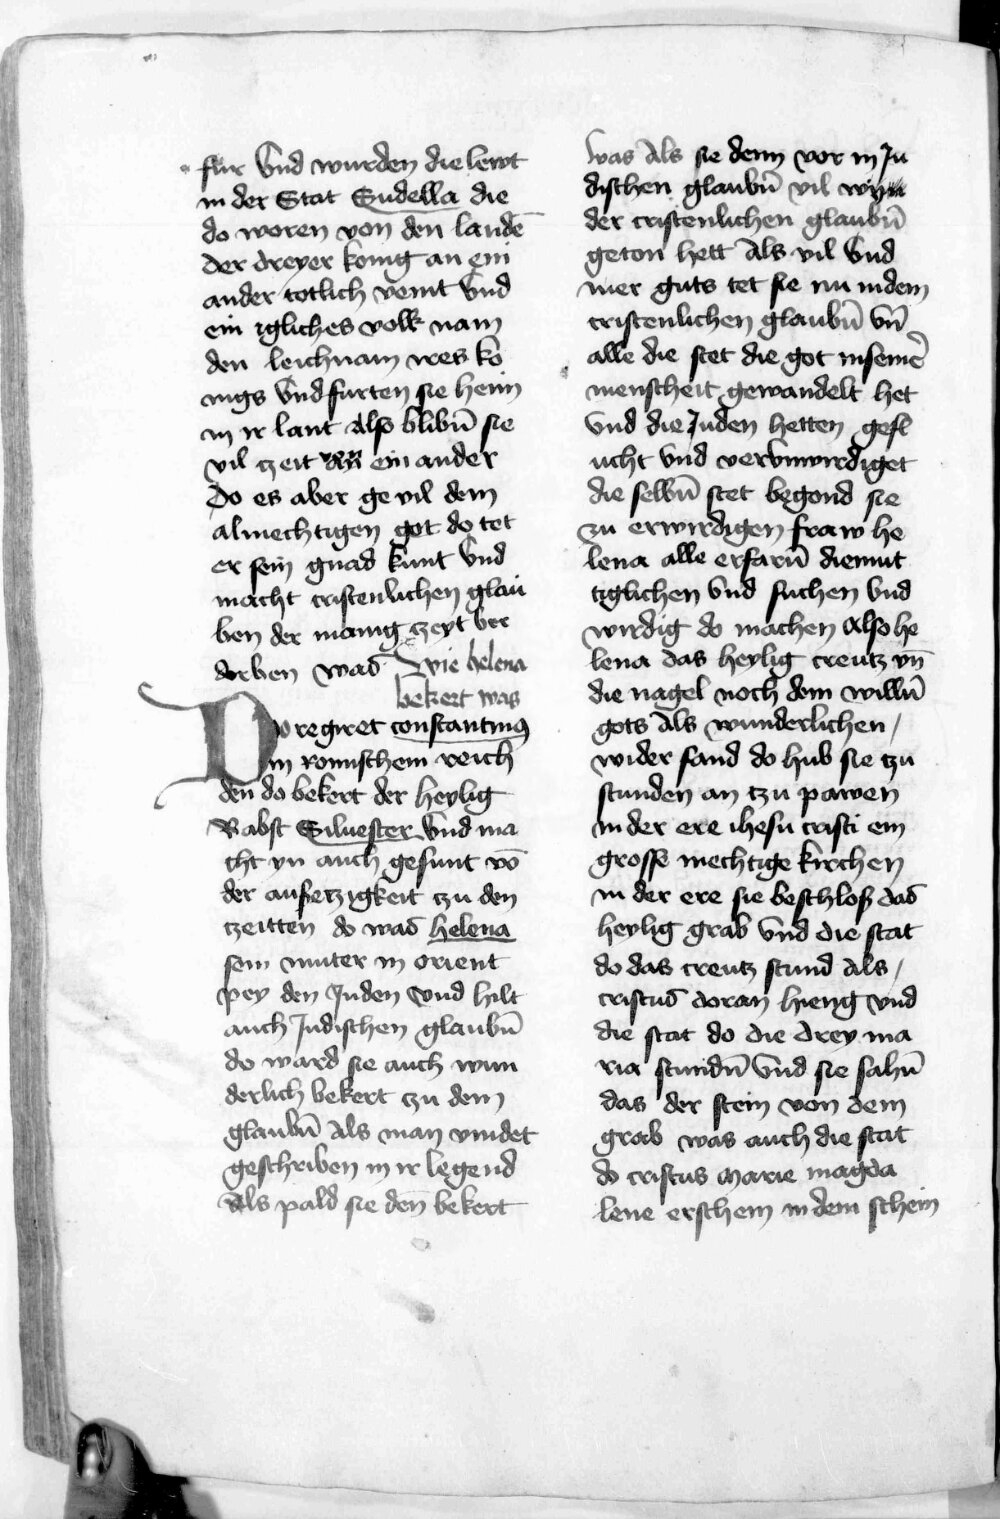 fur Vnd wurden die lewt
in der Stat Sudella die
do woren von den landē
der dreyer konig an ein
ander totlich veint Vnd
ein igliches volk nam
den leichnam wes ko
nigs Vnd furten sie heim
in ir lant Also blibn̄ sie
vil zeit ein ander
Do es aber ge vil dem
almechtigen got do tet
er sein gnad kunt Vnd
macht cristenlichen glau
ben der manig zeyt ver
dorben was Wie helena
bekert was
Do regiret constantinus
in romischem reich
den do bekert der heylig
Babst Siluester Vnd ma
cht yn auch gesunt vō
der auszezigkeit zu den
zeitten do was helena
sein muter in orient
pey den Juden Vnd hilt
auch Judischen glaubn̄
do ward sie auch wun
derlich bekert zu dem
glaubn̄ Als man vindet
geschriben in ir legend
Als pald sie den̄ bekert
was Als sie denn vor in Ju
dischen glaubn̄ vil
der cristenlichen glaubn̄
geton hett Als vil Vnd
mer guts tet sie nu in dem
cristenlichen glaubn̄ vn̄
alle die stet die got in seiner
menscheit gewandelt het
Vnd die Juden hetten gefl
ucht Vnd verunwirdiget
die selbn̄ stet begond sie
zu erwirdigen fraw he
lena alle erfarn̄ diemut
iglichen Vnd suchen Vnd
wirdig do machen Also he
lena das heylig creutz vn̄
die nagel noch dem willn̄
gots Als wunderlichen /
wider fand do hub sie zu
stunden an tzu pawen
in der ere ihesu cristi ein
grosse mechtige kirchen
in der ere sie beschlosz das
heylig grab Vnd die stat
do das creutz stund Als /
cristus doran hieng vnd
die stat do die drey ma
ria stundn̄ Vnd sie sahn̄
das der stein von dem
grab was auch die stat
do cristus marie magda
lene erschein in dem schein